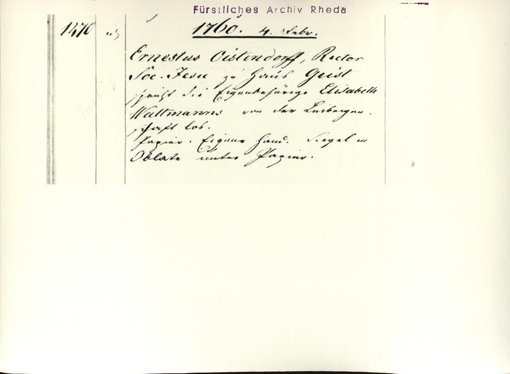 Fürstliches Archiv Rheda
1476
1760. 4. Febr.
Ernestus Oistendorff, Rector
Soc. Jesu zu Haus Geist
spricht die Eigenbehörige Elisabeth
Waltmanns von der Leibeigen-
schaft los.
Papier. Eigene Hand. Siegel in
Oblate unter Papier.